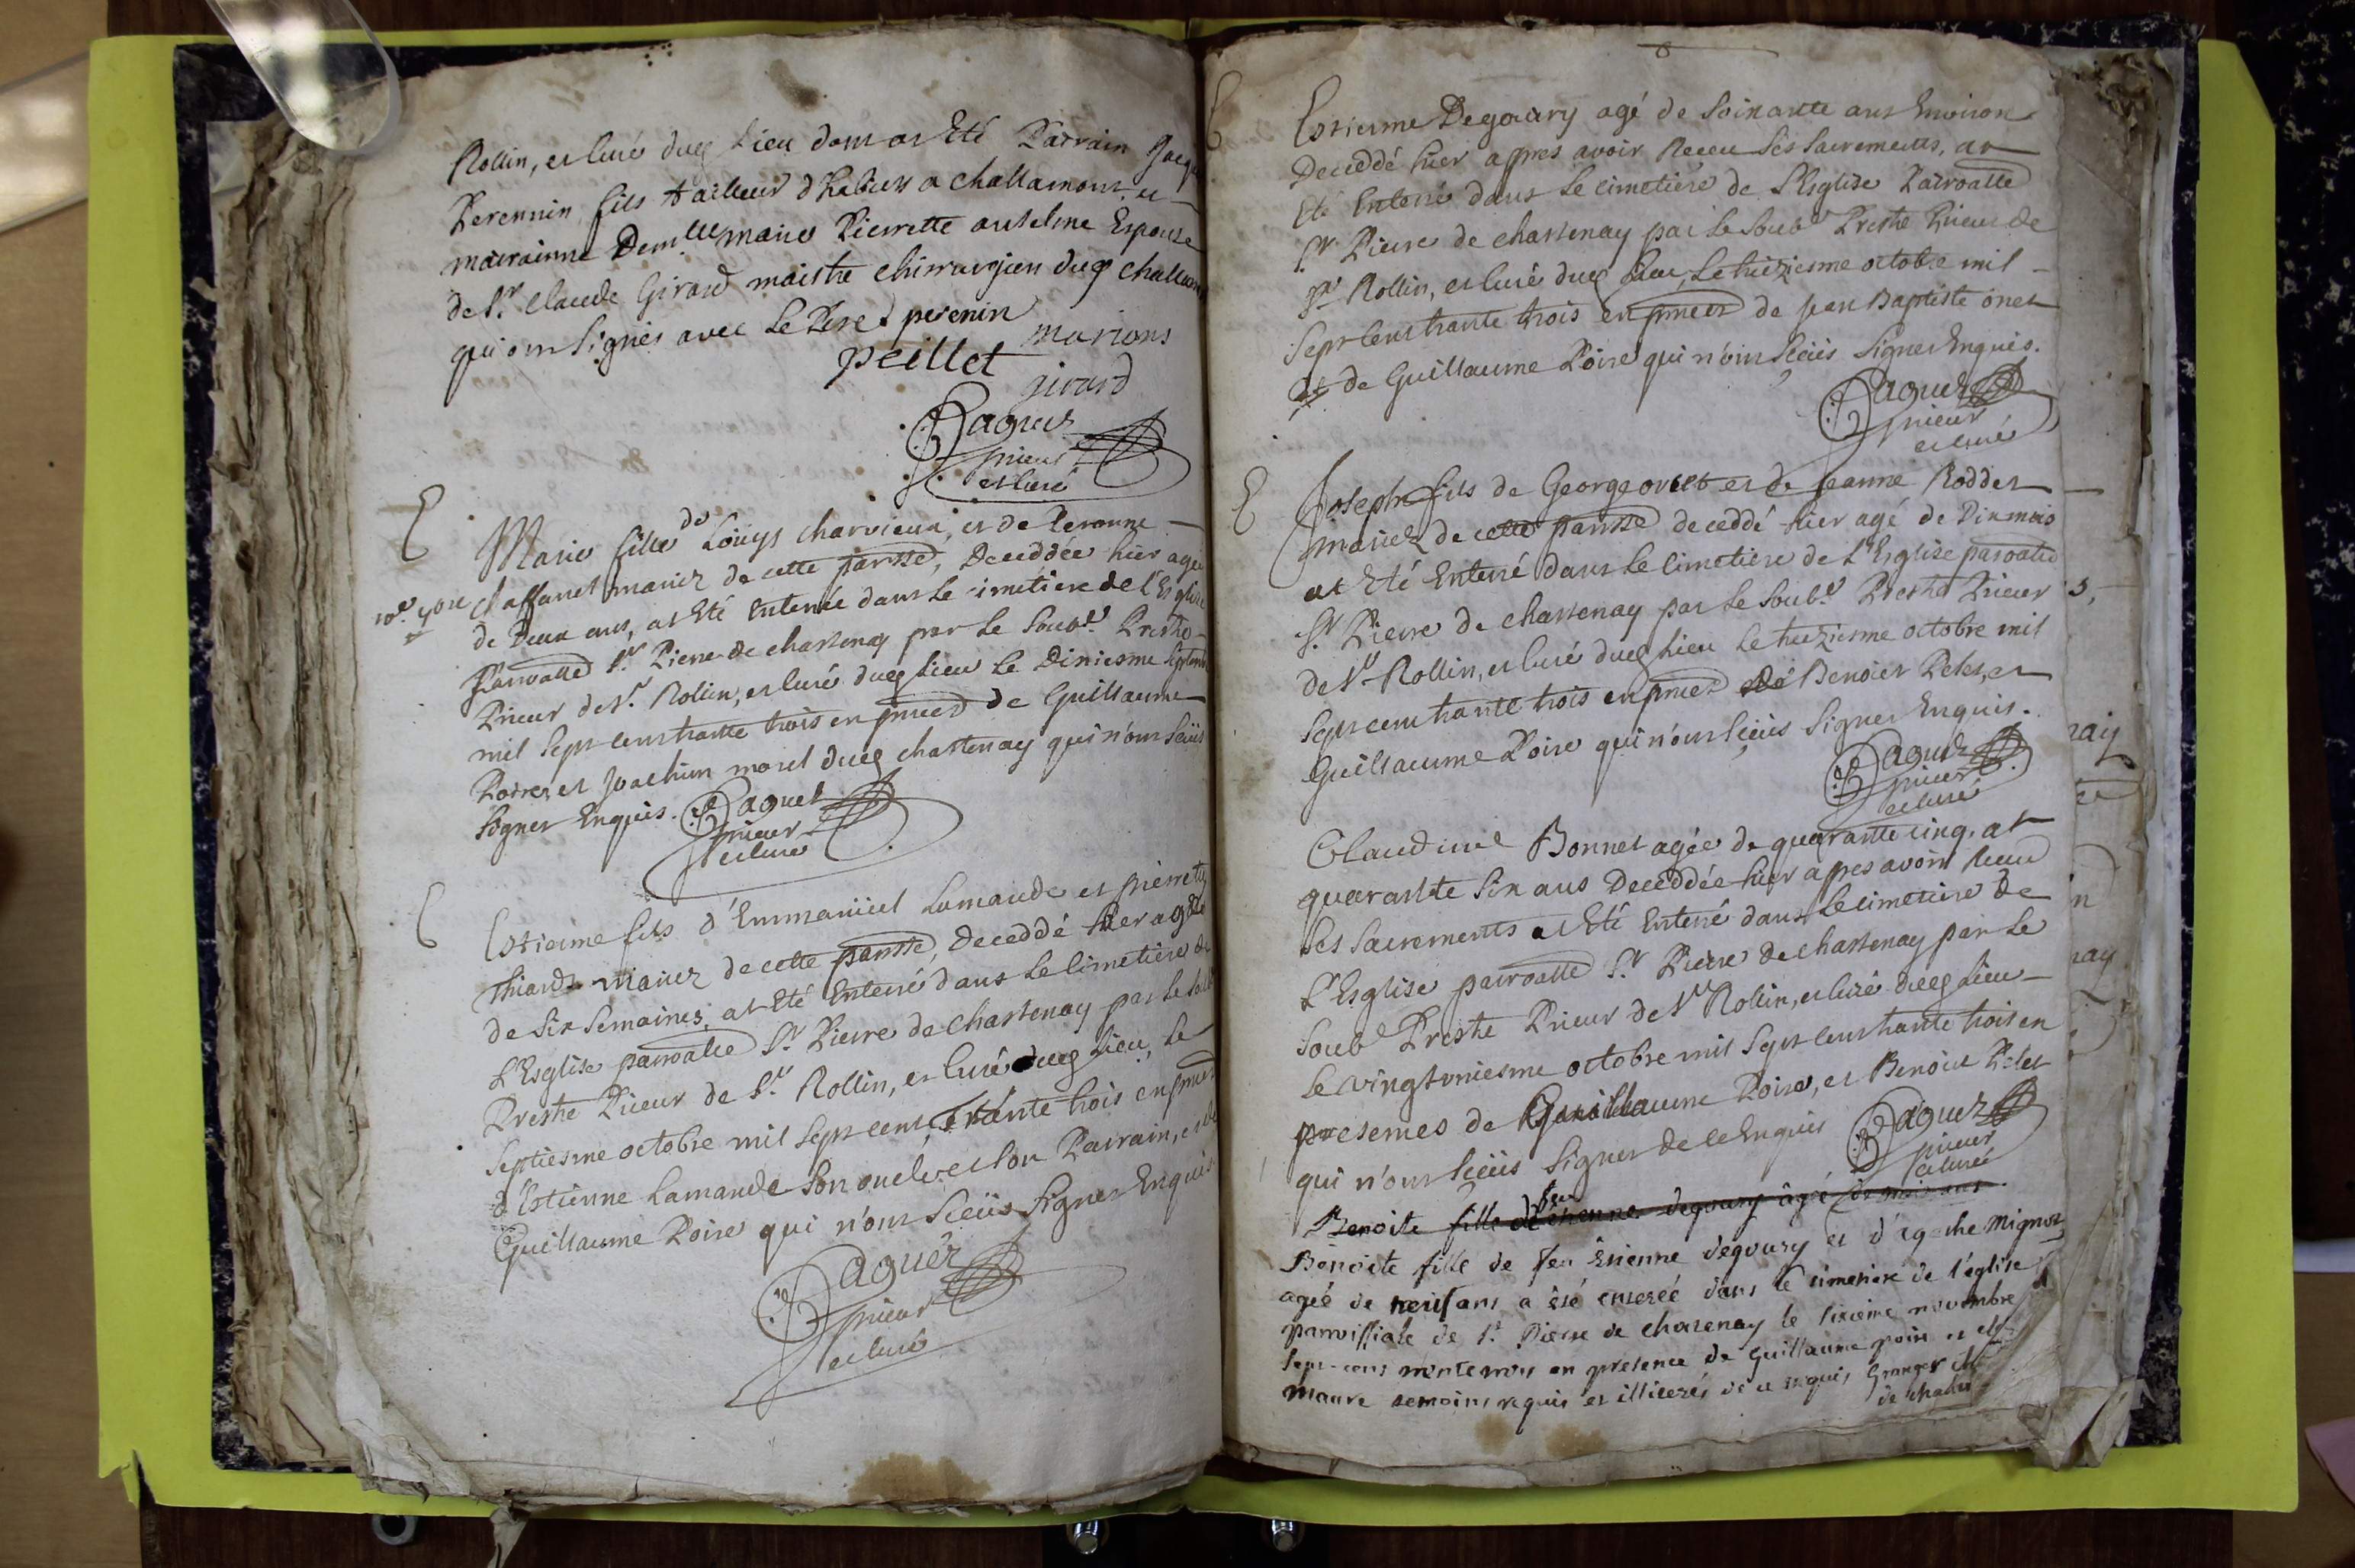 Rollin, et Curé dug lieu dont at Eté Parrain Jacque
Perennin fils tailleur d'habiers a challamont et
marrainne Demlle marie Pierrette anthelme Espouse
de Sr. Claude Girard maistre chirurgien dug challam
qui ont Signés avec Le Pere perenin
marions
peillet
girard
Paguet
prieur
et Curé
E
Marie fille de Louÿs charvieux, et de Peronne
10e. 7bre chaffanet mariez de cette parrsse, Deceddée hier agée
de Deux ans, at Eté Enterrée dans Le cimetiere de l'Esglise
Parroalle St. Pierre de chastenay par Le Soubd. Prestre
Prieur de St. Rolin, et Curé dueg lieu Le Dixiesme Septembre
mil Sept Cent trante trois en pnces de Guillaume
Poire, et Joachim morel dueg chastenay qui n'ont Sceüs
Signer Enquis. Paguet
prieur
et Curé
E
Estienne fils d'Emmanüel Lamande et pierrette
Thiard mariez de cette parrsse, Deceddé hier agé
de Six Semaines, at Eté Enterré dans Le Cimetiere de
L'Esglise parroalle St. Pierre de Chastenay par Le Soub
Prestre Prieur de St. Rollin, et Curé dueg Lieu, Le
Septiesme octobre mil Sept Cent trante trois en pnces
d'Estienne Lamande Son oncle et Son Parrain, et de
Guillaume Poire qui n'ont Sceüs Signer Enquis
Paguet
prieur
et Curé
8
E
Estienne Degoüry agé de Soixante ans Environ
Deceddé hier appres avoir Receu Ses Sacrements, at
Eté Enterré dans Le Cimetiere de L'Esglise Parroalle
St Pierre de chastenay par Le Soubd Prestre Prieur de
St Rollin, et Curé dueg Lieu, Le treiziesme octobre mil
Sept Cent trante trois en pnces de Jean Baptiste onet
et de Guillaume Poire qui n'ont Sceüs Signer Enquis.
Paguet
prieur
et Curé
E
Joseph fils de George ovet et de Jeanne Roddet
mariez de cette parrsse deceddé hier agé de Dix mois
at Eté Enterré dans Le Cimetiere de L'Esglise parroalle
St. Pierre de chastenay par Le Soubd. Prestre Prieur
de St Rollin, et Curé dueg Lieu Le treiziesme octobre mil
Sept cent trante trois en pnces de Benoiet Pelet, et
Guillaume Poire qui n'ont Sceüs Signer Enquis.
Paguet
prieur
et Curé
Claudine Bonnet agée de quarante cinq, at
quarante Six ans Deceddée hier appres avoir Receu
Ses Sacrements at Eté Enterré dans Le Cimetiere de
L'Esglise parroalle St. Pierre de chastenay par Le
Soubd Prestre Prieur de St Rollin, et Curé dueg Lieu
Le vingt uniesme octobre mil Sept Cent trante trois en
presences de Guillaume Poire, et Benoiet Pelet
qui n'ont Sceüs Signer de ce Enquis Paguet
prieur
et Curé
Benoite fille de feu étienne degoury agée de neuf ans
Benoite fille de feu étienne degoury et d'agathe Mignot
ageé de neuf ans a été enterée dans le cimetiere de l'église
parroissiale de St. Pierre de chatenay le sixieme novembre
sept-cens trente trois en presence de Guillaume poire et
Maure temoins requis et illiterés de ce enquis Granger
de chatte